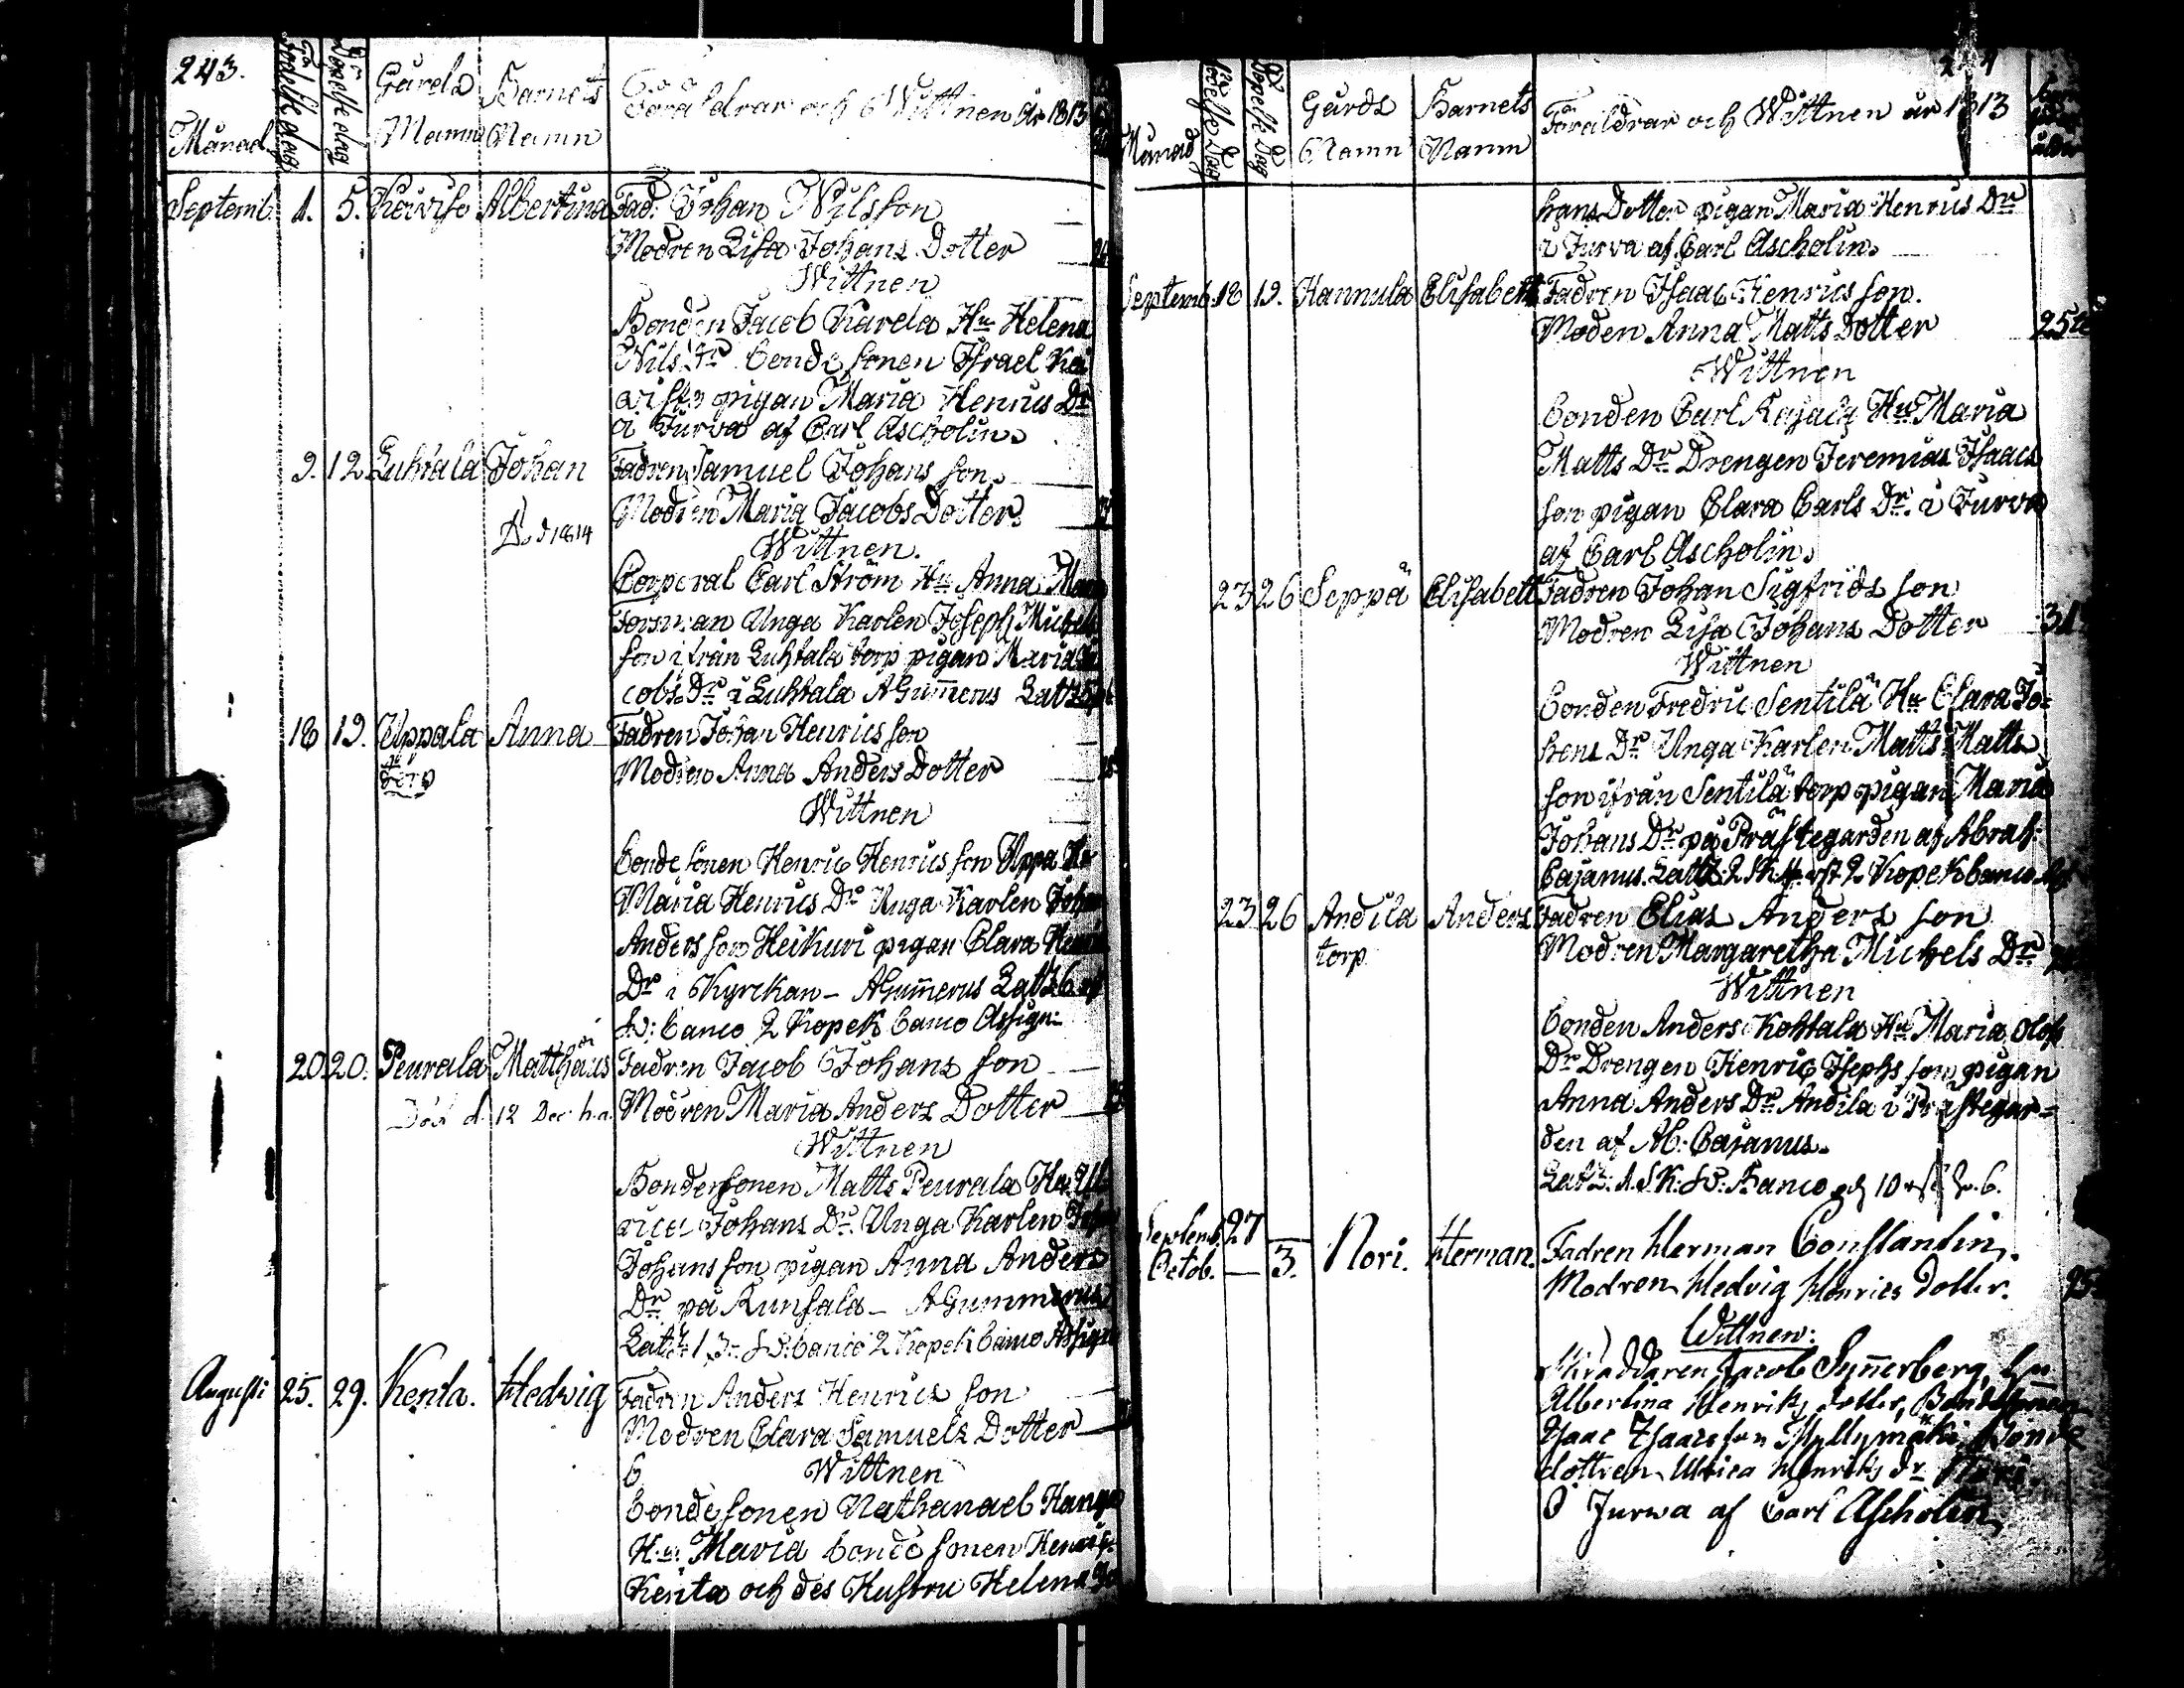 243.
Månad Födelse dag Döpelse dag Gårds Namn Barnets Namn Föräldrar och Wittnen År 1813
Septemb. 1. 5. Albertina Fad: Johan Nilsson
Modren Lisa Johans Dotter
Wittnen
Bonden Jacob Karela Hu Helena
Nils Dr bonde sonen Israel
pigan Maria Henrics Dr
i Jurva af Carl Ascholin.
9. 12. Luhtala Johan Fadren Samuel Johans son.
Modren Maria Jacobs Dotter.
Död 1814
Wittnen.
Corporal Carl Ström Hu Anna
Forsman Unga Karlen Joseph Michels
son ifrån Luhtala torp pigan Maria Ja
cobs Dr i Luhtala AGummerus
18 19. Uppala torp Anna Fadren Johan Henrics son
Modren Anna Anders Dotter
Wittnen
bonde sonen Henric Henrics son Uppa Hu
Maria Henrics Dr Unga Karlen Johan
Anders son Heikuri pigan Clara
Dr i Kyrckan - AGummerus
banco 2 Kopek banco Assign:
20. 20. Peurala Matthæus Fadren Jacob Johans son
Död d. 12 Dec. h.a. Modren Maria Anders Dotter
Wittnen
Bondesonen Matts Peurala Hu Ul
rica Johans Dr. Unga Karlen
Johans son pigan Anna Anders
Dr på AGummerus
banco 2 Kopek banco Assign
Augusti 25. 29. Kenta. Hedvig Fadren Anders Henrics son
Modren Clara Samuels Dotter
Wittnen
bonde sonen Nathanael Kanga
Hu: Maria bonde sonen
Kenta och des Hustru Helena Jo
Månad Födelse Dag Döpelse Dag Gårds Namn Barnets Namn Föräldrar och Wittnen år 1813
hans Dotter pigan Maria Henrics Dr
i Jurva af Carl Ascholin.
Septemb. 18 19. Hannula Elisabeth Fadren Isaac Henrics son.
Modren Anna Matts Dotter 25
Wittnen
bonden Carl Hu Maria
Matts Dr Drengen Jeremias Isaacs
son pigan Clara Carls Dr. i Jurva
af Carl Ascholin.
23 26 Seppä Elisabett Fadren Johan Sigfrids son
Modren Lisa Johans Dotter 31
Wittnen
bonden Fredric Sentilä Hu Clara Jo=
hans Dr Unga Karlen Matts Matts
son ifrån Sentilä torp pigan Maria
Johans Dr på Prästegården af Abrah:
Cajanus. 2 Kopek banco
23 26 Andila torp Anders Fadren Elias Anders son
Modren Margaretha Michels Dr
Wittnen
bonden Anders Kohtala Hu Maria
Dr Drengen Henric son pigan
Anna Anders Dr Andila i Prästegår=
den af Ab: Cajanus.
Banco och 10
Septemb. 27
Octob. 3. Nori. Herman. Fadren Herman Constantin.
Modren Hedvig Henrics Dotter. 25
Wittnen:
Skräddaren Jacob Synnerberg, hu
Albertina Henriks dotter,
Isaac Isaacs son Myllymäki, Bonde
dottren Ulrica Henriks dr Nori
i Jurwa af Carl Ascholin